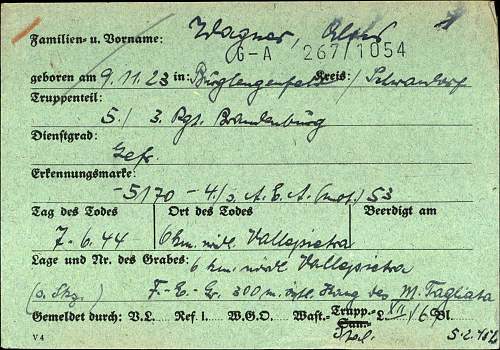 Familien- u. Vorname: Wagner, Alfred
G-A 267/1054
geboren am 9.11.23 in: Burglengenfeld Kreis: / Schwandorf
Truppenteil:
5./ 3. Rgt. Brandenburg
Dienstgrad:
Gefr.
Erkennungsmarke:
-5170 - 4./s. A.E.A. (mot.) 53
Tag des Todes Ort des Todes Beerdigt am
7.6.44 6 km. nördl. Vallepietra
Lage und Nr. des Grabes: 6 km. nördl. Vallepietra
(s. Skz.) F.-E.-Gr. 300 m. östl. Hang des M. Tagliata
Gemeldet durch: V.L. Ref. I. W.G.O. Wast.- Trupp.- L VII/69 Bl.
V 4 Ital. 5.2.45